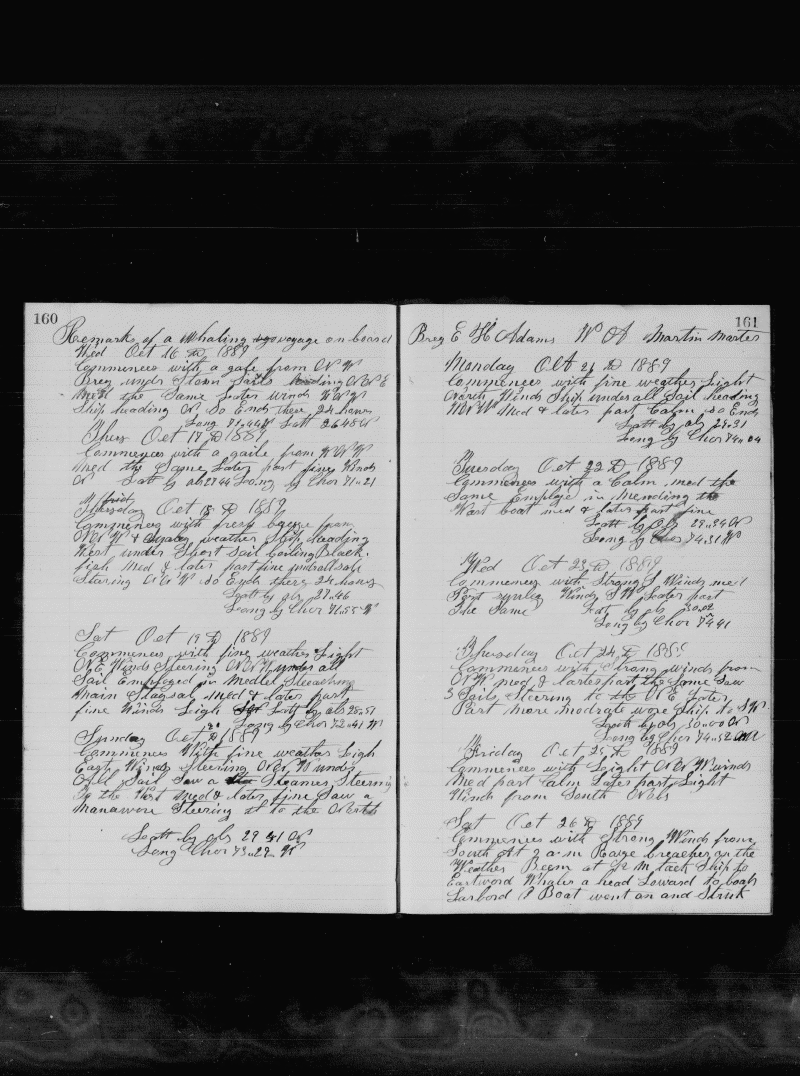 160
Remarks of a Whaling voyage on board
Wed Oct 16 D 1889
Commences with a gale from N W
Breg under Storm Sails heading N N E
Med the Same Later winds W N W
Ship heading N So Ends these 24 hours
Long 71,44 W Latt 26 48 N
Thurs Oct 17 D 1889
Commences with a gaile from W N W
Med the Same Later part fine Winds
N Latt by ob 27 44 Long by Chor 71 21
frid
Thursday Oct 18 D 1889
Commences with fresh breeze from
N W & Squaley weather Ship heading
West under Short Sail boiling Black
fish Med & later part fine under all sail
Staring N N W So Ends there 24 hours
Latt by ob 27 46
Long by Chor 71 55 W
Sat Oct 19 D 1889
Commences with fine weather Light
N E Winds Steering N N W under all
Sail Employed in
Main Staysal Med & later part
fine Winds Leigh Latt by ob 28 51
Long by Chor 72 41 W
Sunday Oct 20 D 1889
Commences With fine weather Leigh
East Winds Steering N N W under
all Sail Saw a Steamer Steering
To the West Med & later fine Saw a
Manawore Steering at to the North
Latt by ob 29 31 N
Long Chor 73 22 W
161
Breg E H Adams W OA Martin Marter
Monday Oct 21 D 1889
Commences with fine weather Light
North Winds Ship under all Sail heading
W N W Med & later part Calm So Ends
Latt by ob 29 31
Long by Chor 74 04
Tuesday Oct 22 D 1889
Commences with a Calm med the
Same Employe in Mending the
Wast boat med & later part fine
Latt by ob 29 54 N
Long by Chor 74 31 W
Wed Oct 23 D 1889
Commences with Strong S Winds med
Part Winds S W Later part
The Same Latt by ob 30 02
Long by Chor 74 41
Thursday Oct 24 D 1889
Commences with Strong winds from
N W med & later part the Same Saw
3 Sails Steering to the N E Later
Part more modrate wore Ship to S W
Latt by ob 30 00 N
Long by Chor 74 52
Friday Oct 25 D 1889
Commences with Light N W Winds
Med part Calm Later part Light
Winds from South No ob
Sat Oct 26 D 1889
Commences with Strong Winds from
South At 7 a m Raise breacher on the
Weather Beem at P M tack Ship to
Eastword Whales a head Loward to boats
Larbord Boat went on and Struk